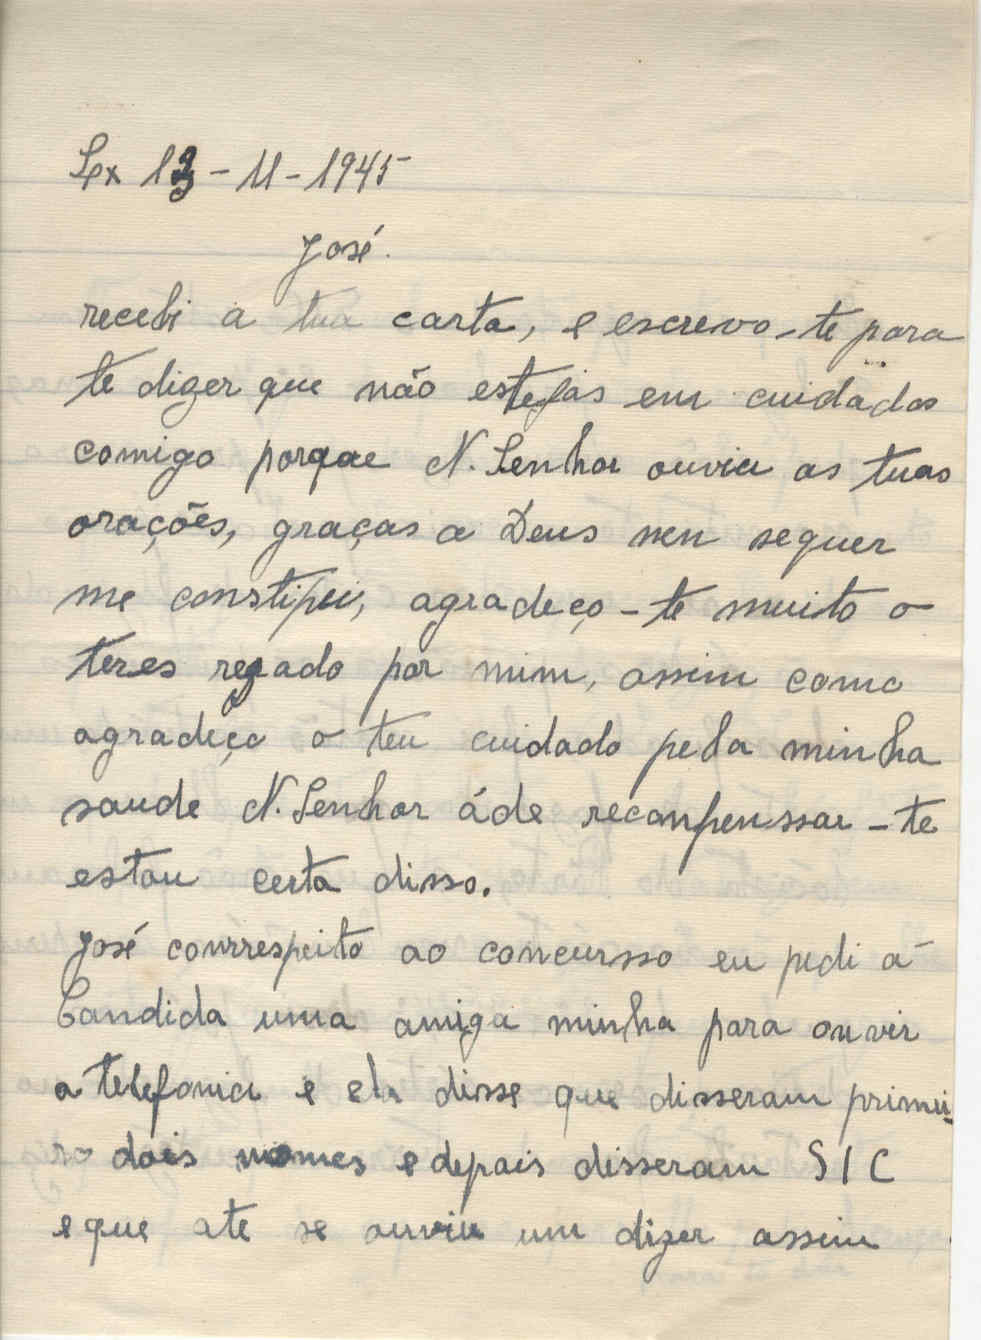 Lx 13-11-1945
José.
recebi a tua carta, e escrevo-te para
te dizer que não estejas em cuidados
comigo porque N. Senhor ouviu as tuas
orações, graças a Deus nen sequer
me constipei, agradeço-te muito o
teres rezado por mim, assim como
agradeço o teu cuidado pela minha
saude N. Senhor áde reconpenssar-te
estou certa disso.
José conrrespeito ao concursso eu pedi á
Candida uma amiga minha para ouvir
a telefonia e ela disse que disseram primei-
ro dois nomes e depois disseram SIC
e que ate se ouviu um dizer assim